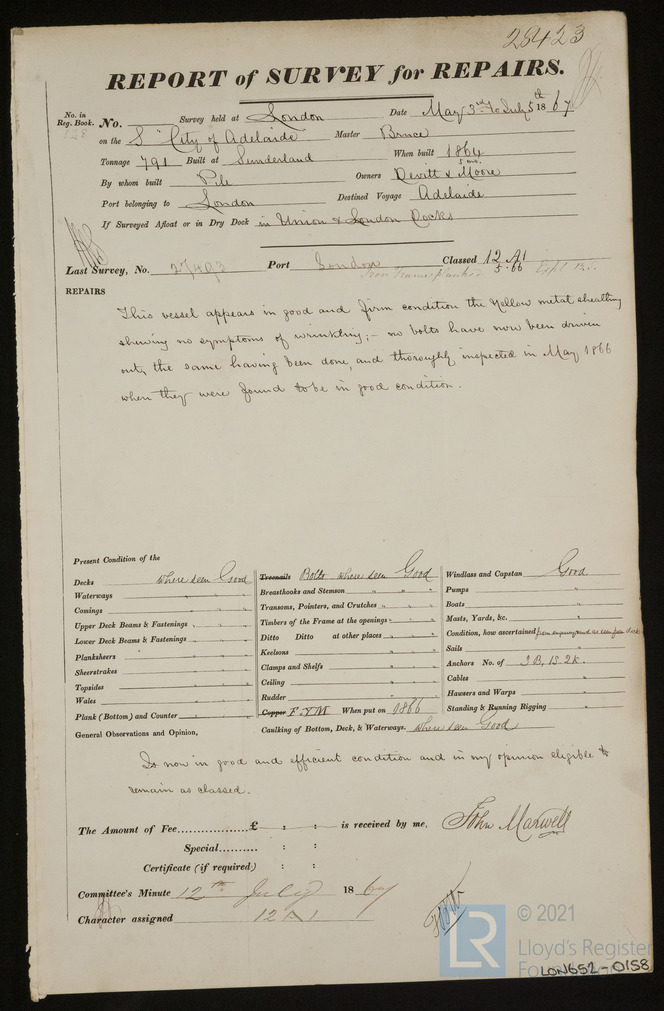 28423
REPORT of SURVEY for REPAIRS.
No. in Reg. Book. 128 No. Survey held at London Date May 3rd to July 5th 1867
on the S "City of Adelaide" Master Bruce
Tonnage 791 Built at Sunderland When built 1864 5 mo.
By whom built Pile Owners Devitt & Moore
Port belonging to London Destined Voyage Adelaide
If Surveyed Afloat or in Dry Dock in Union & London Docks
Last Survey, No. 27493 Port London Classed 12 A1
Iron Frame planked 5.66
REPAIRS
This vessel appears in good and firm condition the Yellow metal sheathing
shewing no symptoms of wrinkling; - no bolts have now been driven
out, the same having been done, and thoroughly inspected in May 1866
when they were found to be in good condition.
Present Condition of the
Decks where seen Good
Waterways " " "
Comings " " "
Upper Deck Beams & Fastenings " " "
Lower Deck Beams & Fastenings " " "
Planksheers " " "
Sheerstrakes " " "
Topsides " " "
Wales " " "
Plank (Bottom) and Counter " " "
Treenails Bolts where seen Good
Breasthooks and Stemson " " "
Transoms, Pointers, and Crutches " " "
Timbers of the Frame at the openings " "
Ditto Ditto at other places " "
Keelsons " "
Clamps and Shelfs " "
Ceiling " "
Rudder " "
Copper F Y M When put on 1866
Caulking of Bottom, Deck, & Waterways. where seen Good
Windlass and Capstan Good
Pumps "
Boats "
Masts, Yards, &c. "
Condition, how ascertained from enquiry and as seen from deck
Sails "
Anchors No. of 3 B, 1 S 2 K.
Cables "
Hawsers and Warps "
Standing & Running Rigging "
General Observations and Opinion,
Is now in good and efficient condition and in my opinion eligible to
remain as classed.
The Amount of Fee £ : : is received by me, John Maxwell
Special : :
Certificate (if required) : :
Committee's Minute 12th July 1867
Character assigned 12 A 1
LR © 2021
Lloyd's Register
Foundation
LON652-0158